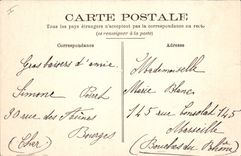 CARTE POSTALE
Tous les pays étrangers n'acceptent pas la correspondance au recto
(se renseigner à la poste)
Correspondance
Adresse
Gros baisers d'amie
Simone
30 rue des
Bourges
(Cher)
Mademoiselle
Marie Blanc
145 rue Consolat 145
Marseille
(Bouches du Rhône)